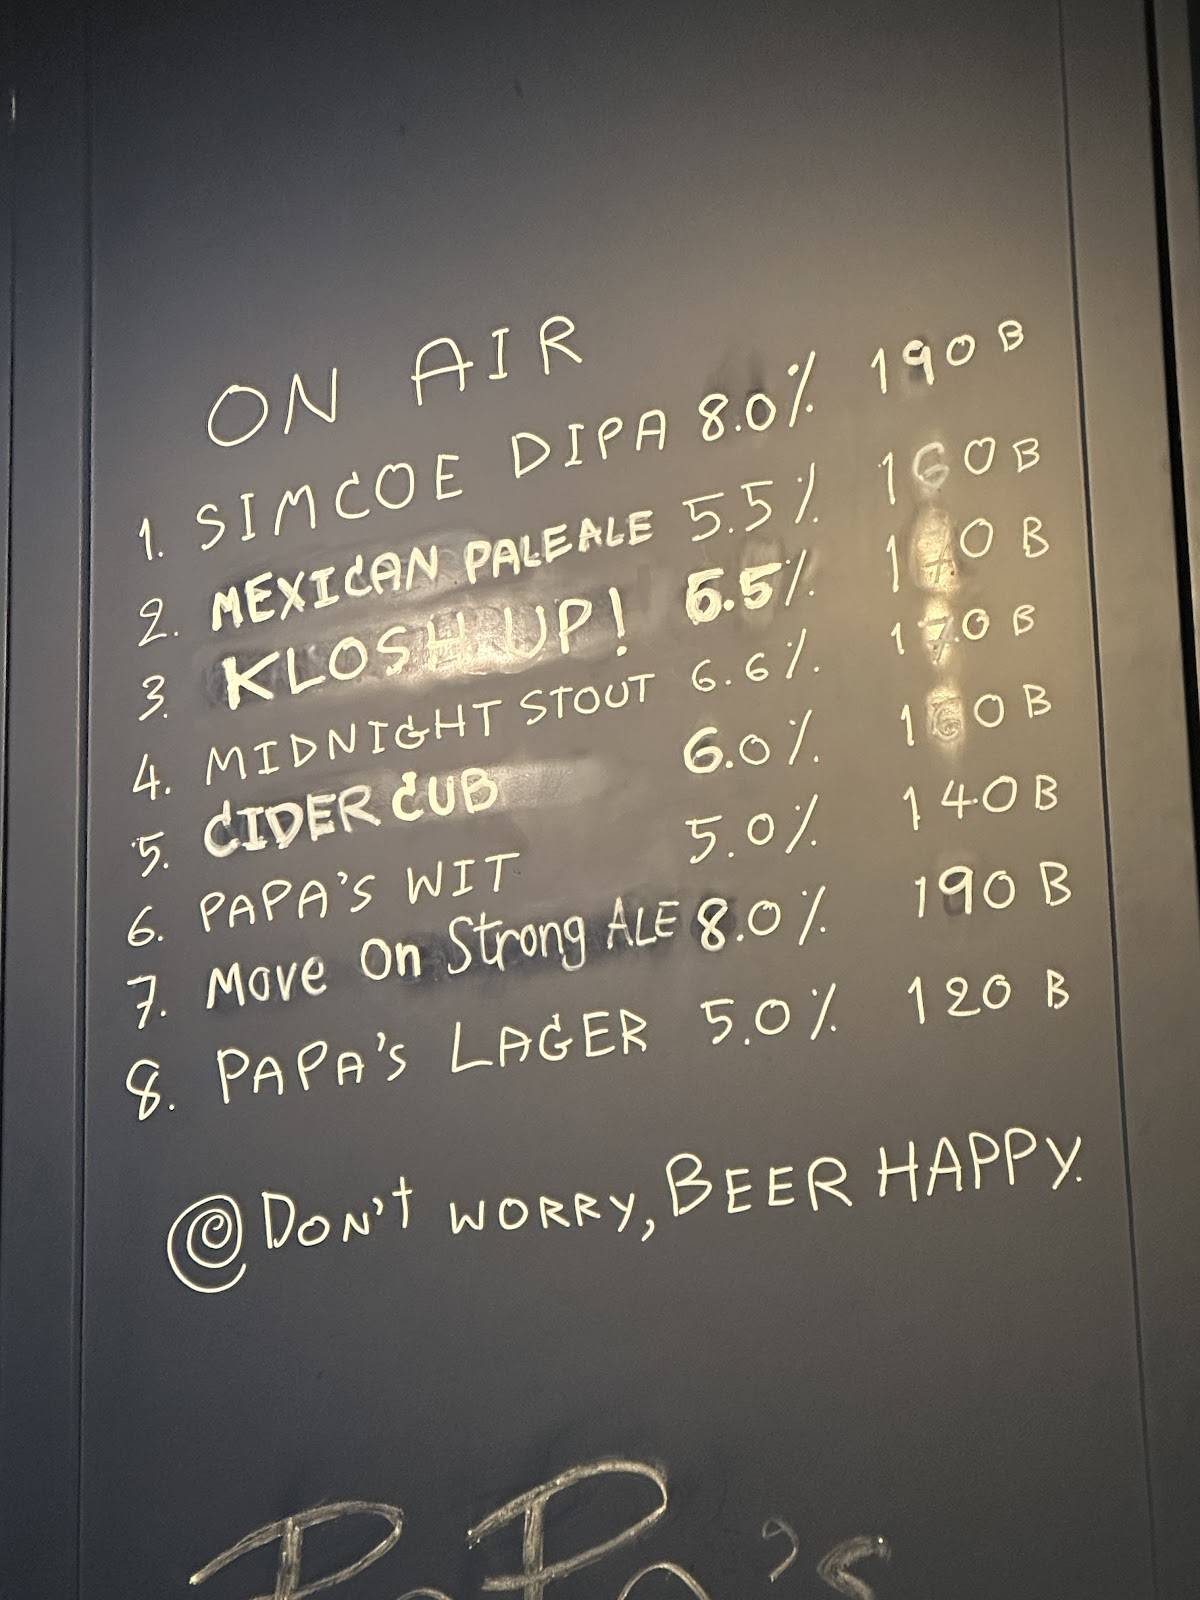 ON AIR
1. SIMCOE DIPA 8.0% 190 B
2. MEXICAN PALE ALE 5.5% 160 B
3. KLOSH UP! 6.5% 170 B
4. MIDNIGHT STOUT 6.6% 170 B
5. CIDER CUB 6.0% 160 B
6. PAPA'S WIT 5.0% 140 B
7. Move On Strong ALE 8.0% 190 B
8. PAPA'S LAGER 5.0% 120 B
@DON'T WORRY, BEER HAPPY.
PaPa's